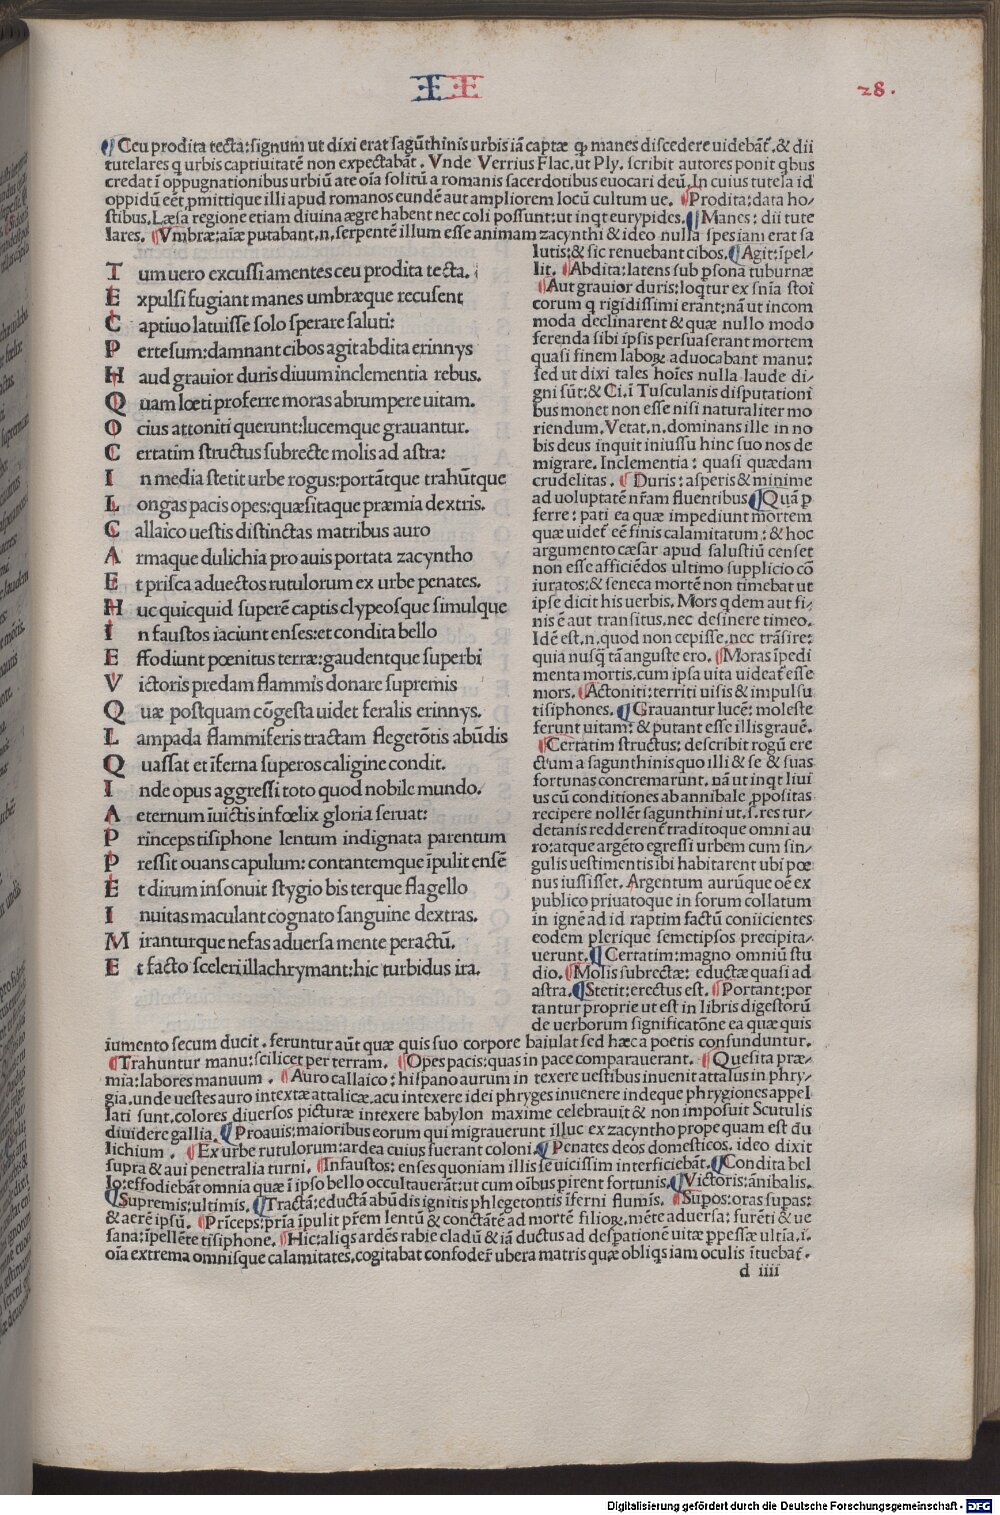 II
28.
¶Ceu prodita tecta:signum ut dixi erat sagūthinis urbis iā captæ ꝙ manes discedere uidebāt̉.& dii
tutelares q urbis captiuitatē non expectabāt. Vnde Verrius Flac.ut Ply. scribit autores ponit qbus
credat ī oppugnationibus urbiū ate oīa solitū a romanis sacerdotibus euocari deū.In cuius tutela id
oppidū eēt ꝓmittique illi apud romanos eundē aut ampliorem locū cultum ue. ¶Prodita:data ho⸗
stibus.Læsa regione etiam diuina ægre habent nec coli possunt:ut inqt eurypides.¶Manes: dii tute
lares. ¶Vmbræ:aīæ putabant.n.serpentē illum esse animam zacynthi & ideo nulla spes iam erat sa
T um uero excussi amentes ceu prodita tecta.
E xpulsi fugiant manes umbræque recusent
C aptiuo latuisse solo sperare saluti:
P ertesum:damnant cibos agit abdita erinnys
H aud grauior duris diuum inclementia rebus.
Q uam lœti proferre moras abrumpere uitam.
O cius attoniti querunt:lucemque grauantur.
C ertatim structus subrecte molis ad astra:
I n media stetit urbe rogus:portātque trahūtque
L ongas pacis opes:quæsitaque præmia dextris.
C allaico uestis distinctas matribus auro
A rmaque dulichia pro auis portata zacyntho
E t prisca aduectos rutulorum ex urbe penates.
H uc quicquid superē captis clypeosque simulque
I n faustos iaciunt enses:et condita bello
E ffodiunt pœnitus terræ:gaudentque superbi
V ictoris predam flammis donare supremis
Q uæ postquam cōgesta uidet feralis erinnys.
L ampada flammiferis tractam flegetōtis abūdis
Q uassat et īferna superos caligine condit.
I nde opus aggressi toto quod nobile mundo.
A eternum īuictis infœlix gloria seruat:
P rinceps tisiphone lentum indignata parentum
P ressit ouans capulum: contantemque īpulit ensē
E t dirum insonuit stygio bis terque flagello
I nuitas maculant cognato sanguine dextras.
M iranturque nefas aduersa mente peractū.
E t facto sceleri illachrymant:hic turbidus ira.
lutis:& sic renuebant cibos.¶Agit:īpel⸗
lit. ¶Abdita:latens sub ꝑsona tuburnæ
¶Aut grauior duris:loqtur ex snīa stoi
corum q rigidissimi erant:nā ut incom
moda declinarent & quæ nullo modo
ferenda sibi ipsis persuaserant mortem
quasi finem laboꝝ aduocabant manu:
sed ut dixi tales hoīes nulla laude di⸗
gni sūt:& Ci.ī Tusculanis disputationi
bus monet non esse nisi naturaliter mo
riendum.Vetat.n.dominans ille in no
bis deus inquit iniussu hinc suo nos de
migrare. Inclementia: quasi quædam
crudelitas. ¶Duris: asperis & minime
ad uoluptatē nr̄am fluentibus ¶Quā ꝑ
ferre: pati ea quæ impediunt mortem
quæ uidet̉ eē finis calamitatum: & hoc
argumento cæsar apud salustiū censet
non esse afficiēdos ultimo supplicio cō
iuratos:& seneca mortē non timebat ut
ipse dicit his uerbis. Mors qdem aut fi⸗
nis ē aut transitus.nec desinere timeo.
Idē est.n.quod non cepisse.nec trāsire:
quia nusq̄ tā anguste ero. ¶Moras īpedi
menta mortis.cum ipsa uita uideat̉ esse
mors. ¶Actoniti:territi uisis & impulsu
tisiphones. ¶Grauantur lucē: moleste
ferunt uitam: & putant esse illis grauē.
¶Certatim structus: describit rogū ere
ctum a sagunthinis quo illi & se & suas
fortunas concremarunt. nā ut inqt liui
us cū conditiones ab annibale ꝓpositas
recipere nollēt sagunthini ut.s.res tur⸗
detanis redderent̉ traditoque omni au
ro:atque argēto egressi urbem cum sin⸗
gulis uestimentis ibi habitarent ubi pœ
nus iussisset. Argentum aurūque oē ex
publico priuatoque in forum collatum
in ignē ad id raptim factū coniicientes
eodem plerique semetipsos precipita⸗
uerunt.¶Certatim:magno omniū stu
dio. ¶Molis subrectæ: eductæ quasi ad
astra.¶Stetit:erectus est. ¶Portant:por
tantur proprie ut est in libris digestorū
de uerborum significatōne ea quæ quis
iumento secum ducit. feruntur aūt quæ quis suo corpore baiulat sed hæc a poetis confunduntur.
¶Trahuntur manu:scilicet per terram. ¶Opes pacis:quas in pace comparauerant. ¶Quesita præ⸗
mia:labores manuum. ¶Auro callaico: hispano aurum in texere uestibus inuenit attalus in phry⸗
gia.unde uestes auro intextæ attalicæ.acu intexere idei phryges inuenere indeque phrygiones appel
lati sunt.colores diuersos picturæ intexere babylon maxime celebrauit & non imposuit Scutulis
diuidere gallia. ¶Proauis:maioribus eorum qui migrauerunt illuc ex zacyntho prope quam est du
lichium. ¶Ex urbe rutulorum:ardea cuius fuerant coloni.¶Penates deos domesticos. ideo dixit
supra & aui penetralia turni. ¶Infaustos: enses quoniam illis se uicissim interficiebāt.¶Condita bel
lo:effodiebāt omnia quæ ī ipso bello occultauerāt:ut cum oībus pirent fortunis.¶Victoris:ānibalis.
¶Supremis:ultimis. ¶Tractā:eductā abūdis ignitis phlegetontis īferni flumīs. ¶Supos:oras supas:
& aerē ipsū. ¶Prīceps:prīa īpulit pr̄em lentū & conctātē ad mortē filioꝝ.mēte aduersa: furēti & ue
sana:īpellēte tisiphone. ¶Hic:aliqs ardēs rabie cladū & iā ductus ad despationē uitæ ꝑpessæ ultia.i.
oīa extrema omnisque calamitates.cogitabat confoder̄ ubera matris quæ obliqs iam oculis ītuebat̉.
d iiii
Digitalisierung gefördert durch die Deutsche Forschungsgemeinschaft - DFG